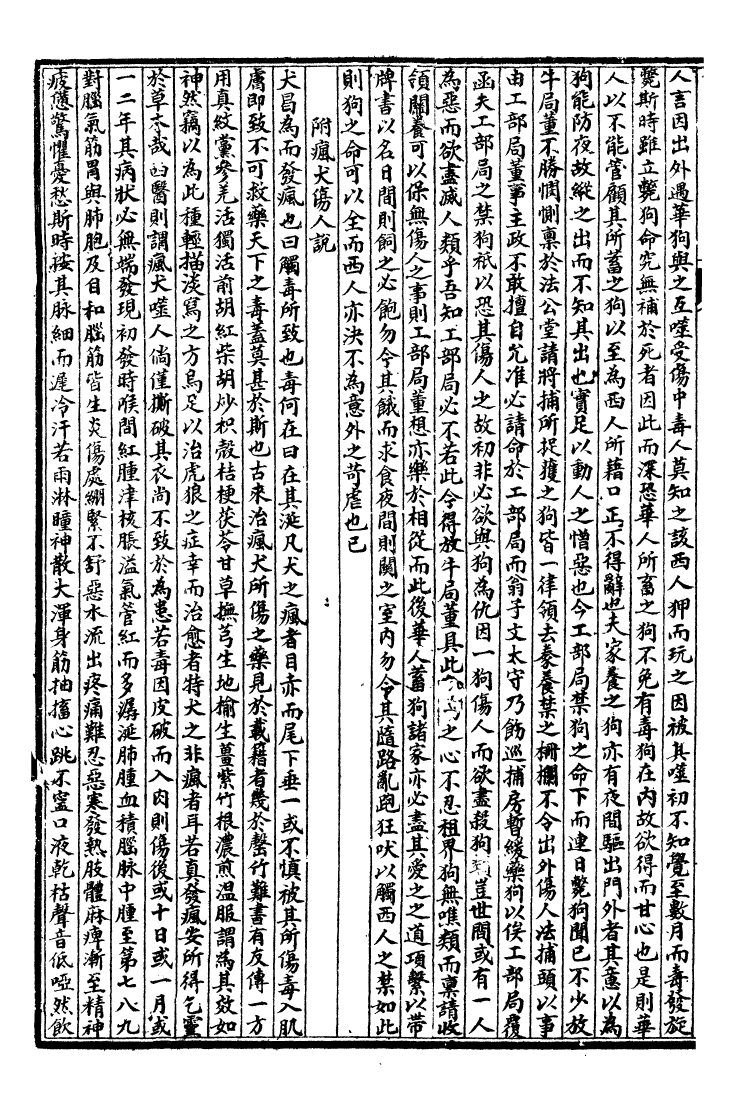 人言因出外遇華狗與之互噬受傷中毒人莫知之該西人狎而玩之因被其噬初不知覺至數月而毒發旋
斃斯時雖立斃狗命究無補於死者因此而深恐華人所畜之狗不免有毒狗在內故欲得而甘心也是則華
人以不能管顧其所蓄之狗以至為西人所藉口正不得辭也夫家養之狗亦有夜間驅出門外者其意以為
狗能防夜故縱之出而不知其出也實足以動人之憎惡也今工部局禁狗之命下而連日斃狗聞已不少放
牛局董不勝憫惻稟於法公堂請將捕所捉獲之狗皆一律領去豢養禁之柵欄不令出外傷人法捕頭以事
由工部局董事主政不敢擅自允准必請命於工部局而翁子文太守乃飭巡捕房暫緩藥狗以俟工部局覆
函夫工部局之禁狗衹以恐其傷人之故初非必欲與狗為仇因一狗傷人而欲盡殺狗類豈世間或有一人
為惡而欲盡滅人類乎吾知工部局必不若此今得放牛局董具此之心不忍租界狗無噍類而稟請收
領關養可以保無傷人之事則工部局董想亦樂於相從而此後華人蓄狗諸家亦必盡其愛之之道項繫以帶
牌書以名日間則飼之必飽勿令其餓而求食夜間則闌之室內勿令其隨路亂跑狂吠以觸西人之禁如此
則狗之命可以全而西人亦決不為意外之苛虐也已
附瘋犬傷人說
犬昌為而發瘋也曰觸毒所致也毒何在曰在其涎凡犬之瘋者目赤而尾下垂一或不慎被其所傷毒入肌
膚即致不可救藥天下之毒蓋莫甚於斯也古來治瘋犬所傷之藥見於載籍者幾於罄竹難書有友傳一方
用真紋黨參羌活獨活前胡紅柴胡炒枳殼桔梗茯苓甘草撫芎生地榆生薑紫竹根濃煎溫服謂為其效如
神然竊以為此種輕描淡寫之方烏足以治虎狼之症幸而治愈者特犬之非瘋者耳若真發瘋安所得乞靈
於草木哉西醫則謂瘋犬噬人倘僅撕破其衣尚不致於為患若毒因皮破而入肉則傷後或十日或一月或
一二年其病狀必無端發現初發時喉間紅腫津核脹溢氣管紅而多潺涎肺腫血積腦脉中腫至第七八九
對腦氣筋胃與肺胞及目和腦筋皆生炎傷處繃緊不舒惡水流出疼痛難忍惡寒發熱肢體麻痺漸至精神
疲憊驚懼憂愁斯時按其脉細而遲冷汗若雨淋瞳神散大渾身筋抽搐心跳不寧口液乾枯聲音低啞然飲